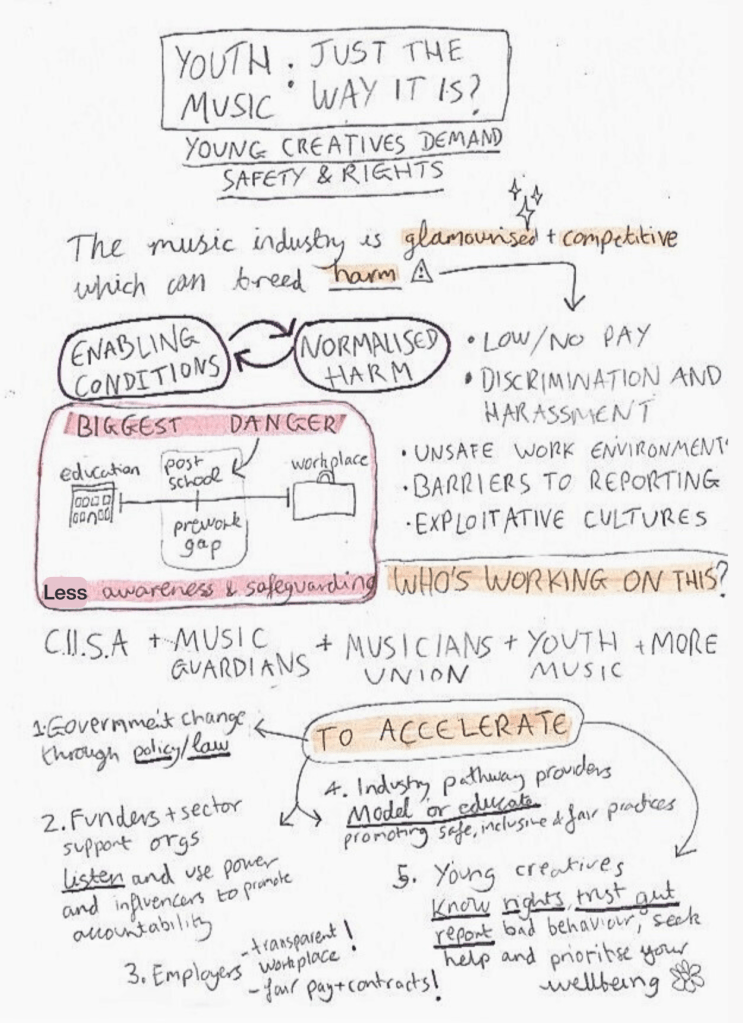 YOUTH MUSIC : JUST THE WAY IT IS?
YOUNG CREATIVES DEMAND
SAFETY & RIGHTS
The music industry is glamourised + competitive
which can breed harm
ENABLING
CONDITIONS
NORMALISED
HARM
• LOW/NO PAY
• DISCRIMINATION AND
HARASSMENT
• UNSAFE WORK ENVIRONMENT
• BARRIERS TO REPORTING
• EXPLOITATIVE CULTURES
BIGGEST DANGER
education
post
school
prework
gap
workplace
Less awareness & safeguarding
WHO'S WORKING ON THIS?
C.I.I.S.A + MUSIC GUARDIANS + MUSICIANS UNION + YOUTH MUSIC + MORE
TO ACCELERATE
1. Government change
through policy/law
2. Funders + sector
support orgs
listen and use power
and influencers to promote
accountability
3. Employers
- transparent workplace!
- fair pay + contracts!
4. Industry pathway providers
Model or educate
promoting safe, inclusive & fair practices
5. Young creatives
Know rights, trust gut
report bad behaviour, seek
help and prioritse your
wellbeing